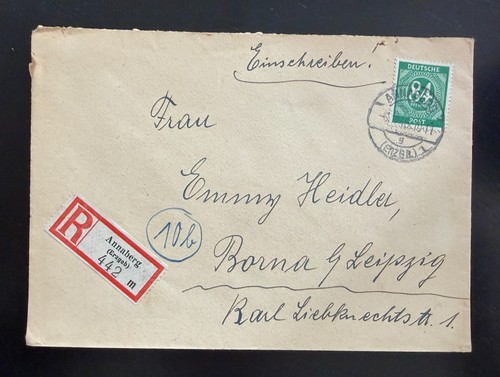 Einschreiben!
DEUTSCHE
84
POST
(ERZGB.) 1
g
Frau
Emmy Heidler,
Borna b/Leipzig
Karl Liebknechtstr. 1.
10b
R
Annaberg
(Erzgeb)
442 m